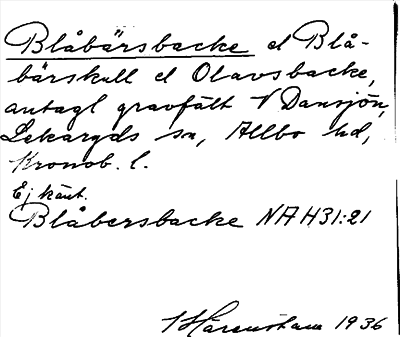 Blåbärsbacke el Blå-
bärskull el Olavsbacke,
antagl gravfält V Dansjön,
Lekaryds sn, Allbo hd,
Kronob. l.
Ej känt.
Blåbersbacke NAH31:21
1936